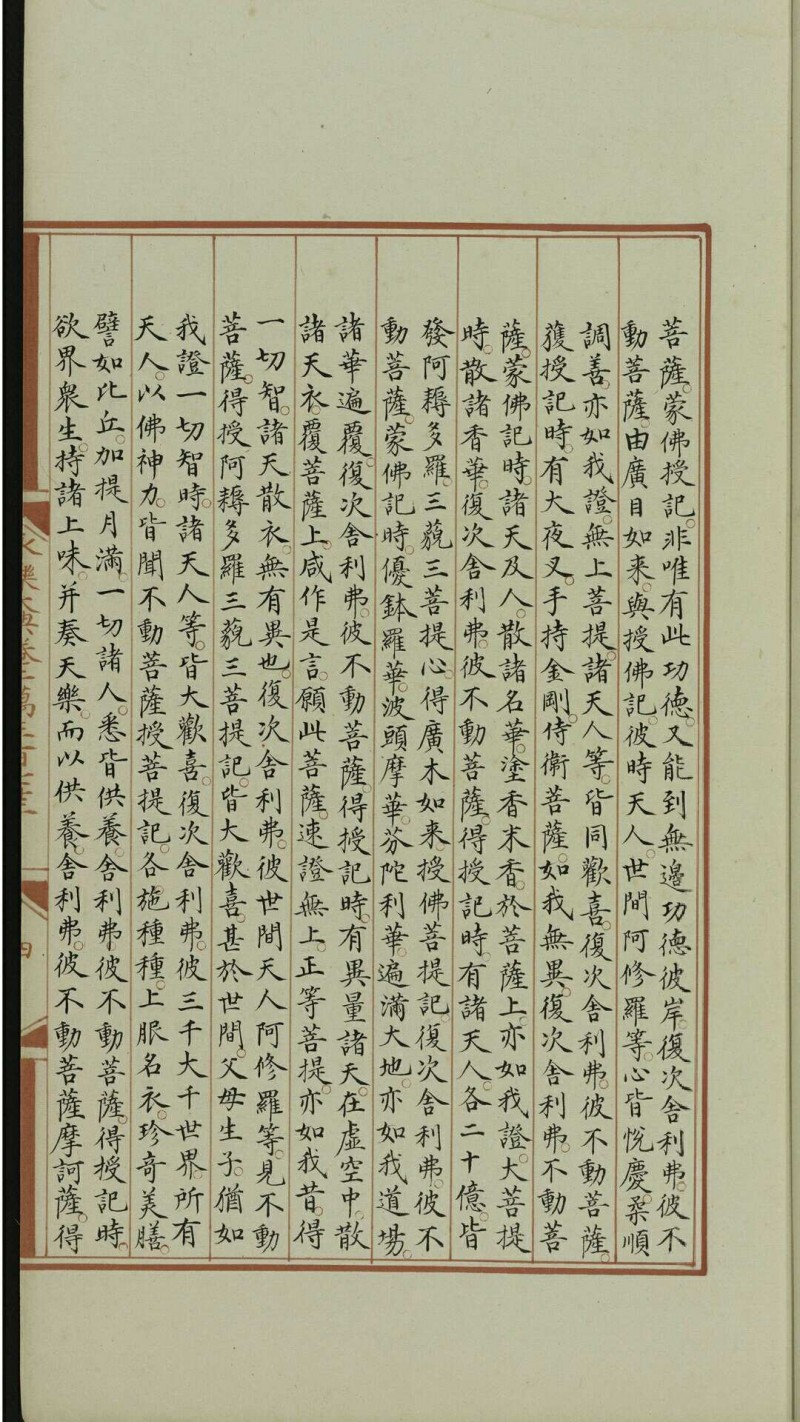 菩薩。蒙佛授記。非唯有此功德。又能到無邊功德彼岸。復次舍利弗。彼不
動菩薩。由廣目如來。與授佛記。彼時天人。世間阿修羅等。心皆悅慶。柔順
調善。亦如我證。無上菩提。諸天人等。皆同歡喜。復次舍利弗。彼不動菩薩。
獲授記時。有大夜叉。手持金剛。侍衛菩薩。如我無異。復次舍利弗。不動菩
薩。蒙佛記時。諸天及人。散諸名華。塗香末香。於菩薩上。亦如我證。大菩提
時。散諸香華。復次舍利弗。彼不動菩薩。得授記時。有諸天人。各二十億。皆
發阿耨多羅。三藐三菩提心。得廣木如來。授佛菩提記。復次舍利弗。彼不
動菩薩。蒙佛記時。優鉢羅華。波頭摩華。芬陀利華。遍滿大地。亦如我道場。
諸華遍覆。復次舍利弗。彼不動菩薩。得授記時。有異量諸天。在虛空中。散
諸天衣。覆菩薩上。咸作是言。願此菩薩。速證無上。正等菩提。亦如我昔。得
一切智。諸天散衣。無有異也。復次舍利弗。彼世間天人阿修羅等。見不動
菩薩。得授阿耨多羅三藐三菩提記。皆大歡喜。甚於世間。父母生子。猶如
我證一切智時。諸天人等。皆大歡喜。復次舍利弗。彼三千大千世界。所有
天人。以佛神力。皆聞不動菩薩授菩提記。各施種種。上服名衣。珍奇美膳。
譬如比丘。加提月滿。一切諸人。悉皆供養。舍利弗。彼不動菩薩。得授記時。
欲界衆生。持諸上味。并奏天樂。而以供養。舍利弗。彼不動菩薩摩訶薩。得
四